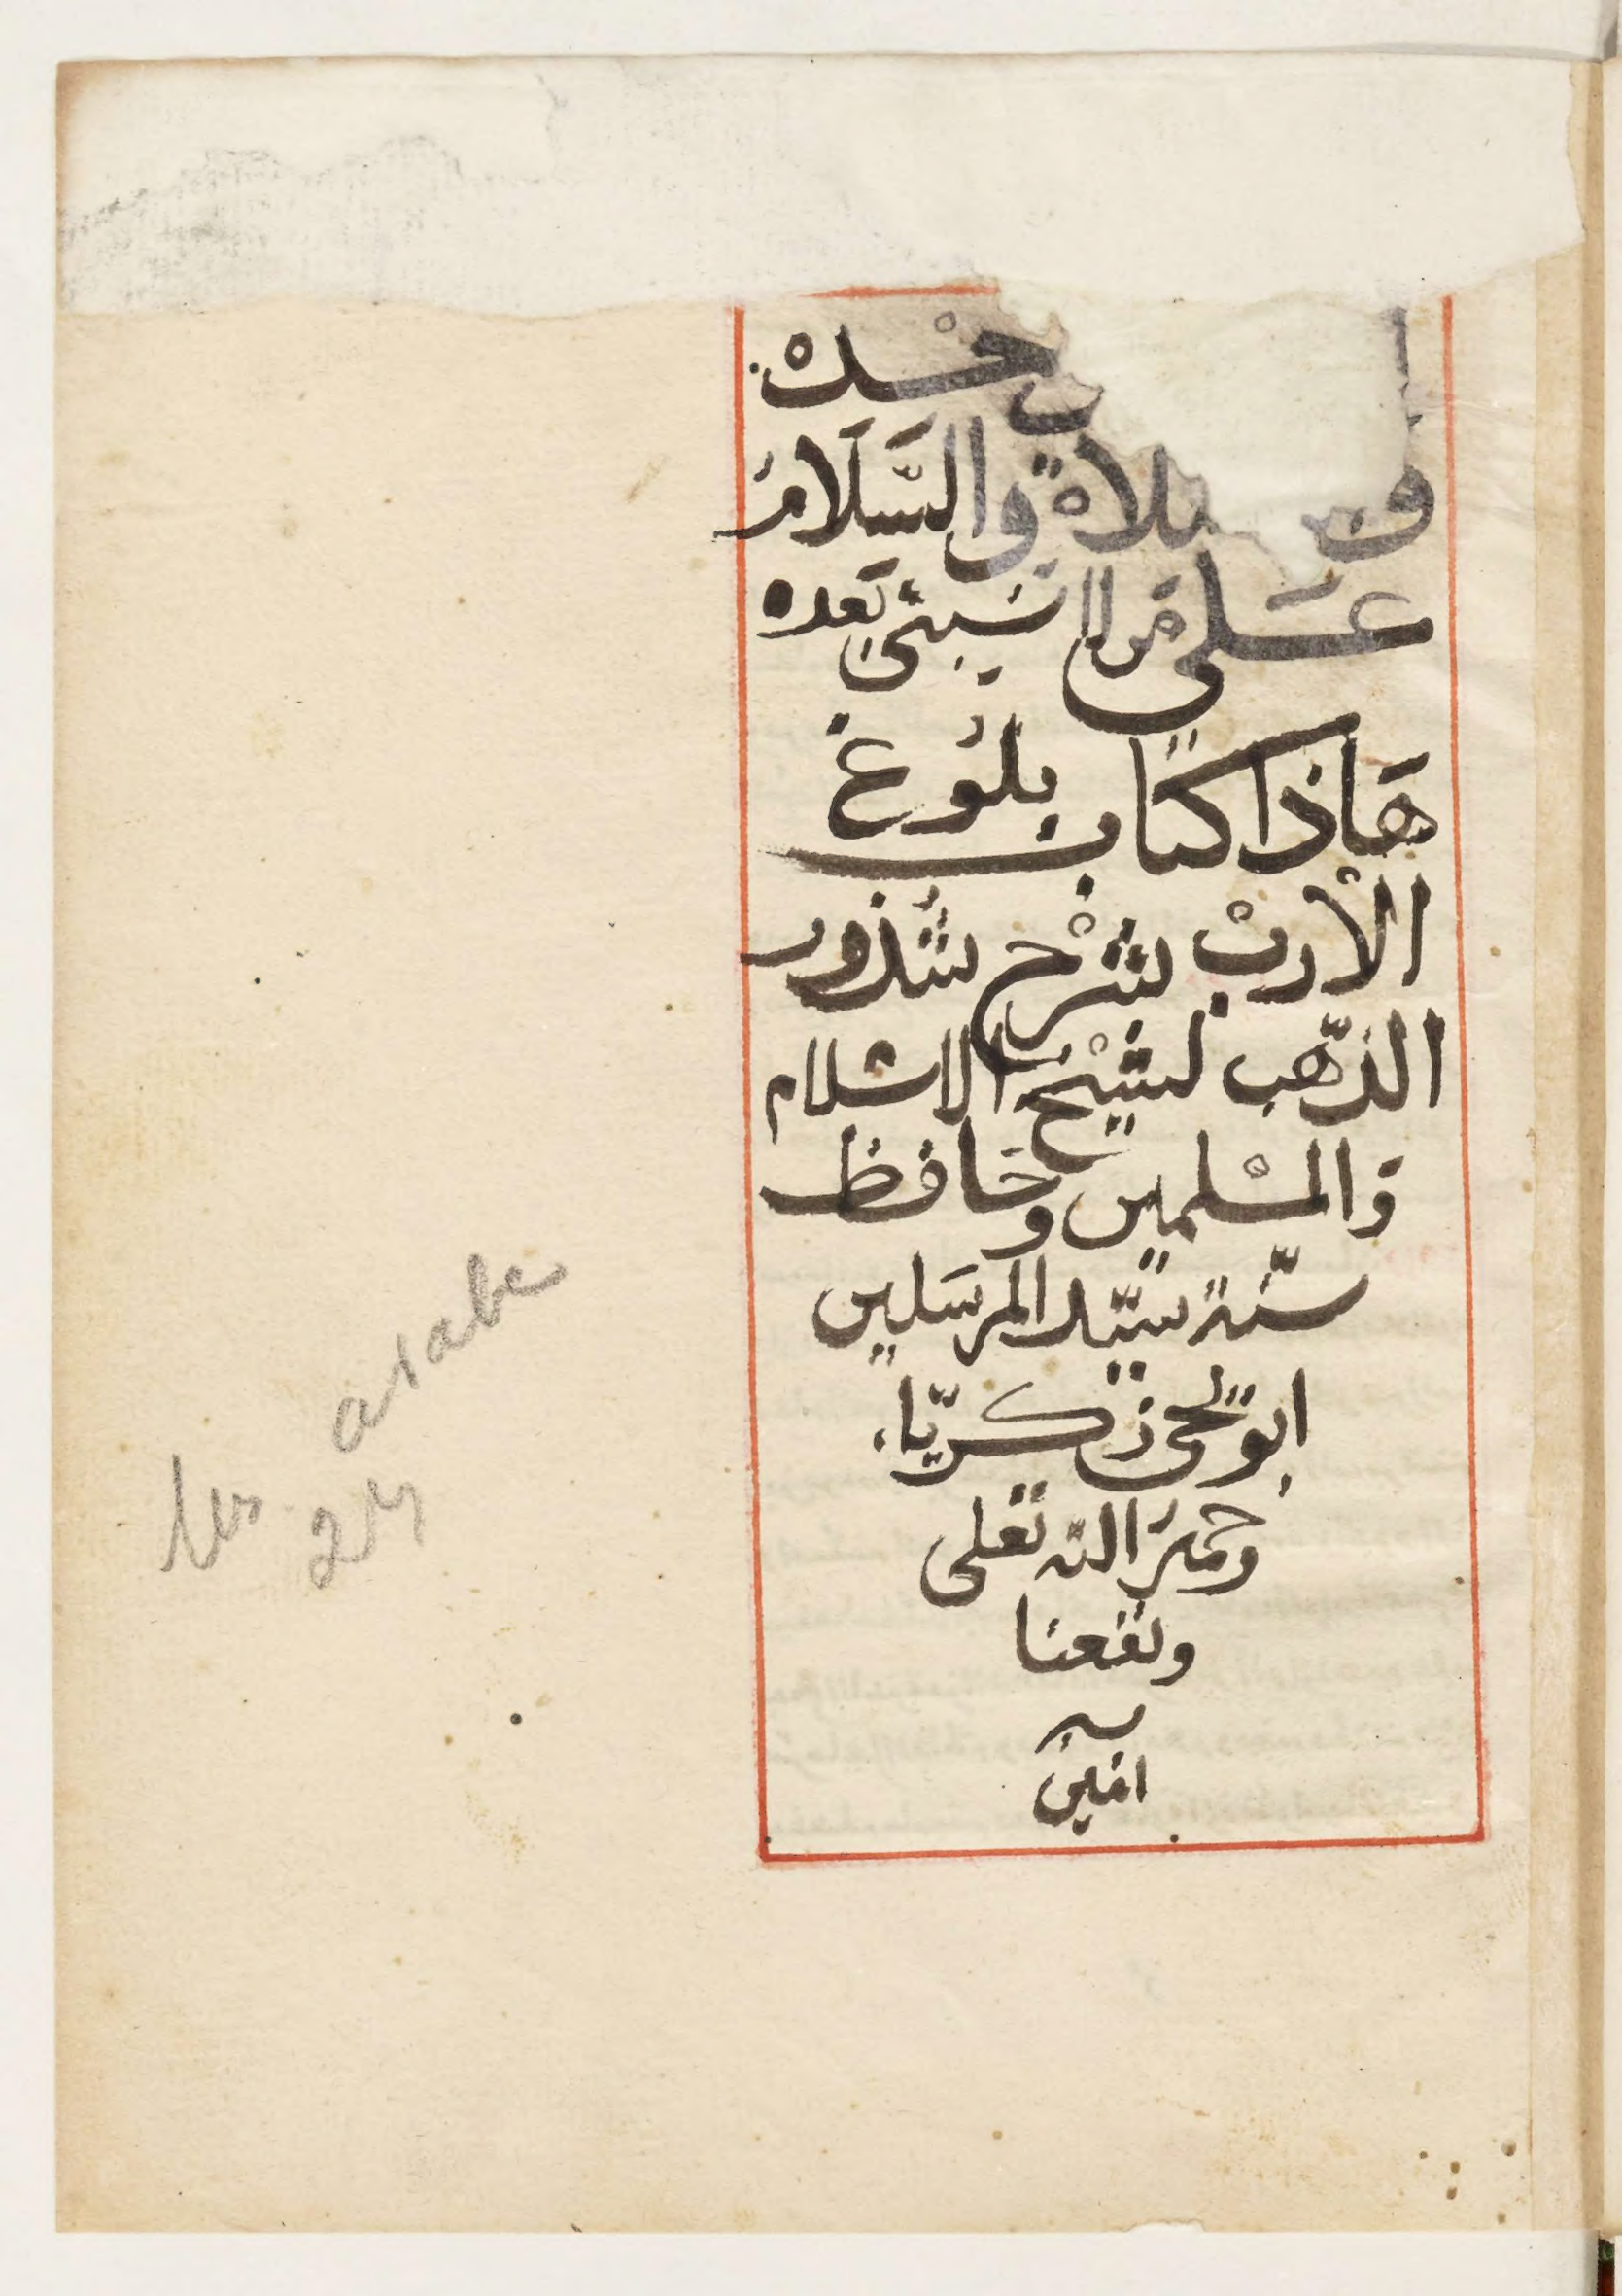 وحده
والصلاة والسلام
على من لا نبي بعده
هاذا كتاب بلوغ
الأرب بشرح شذور
الذهب لشيخ الاسلام
والمسلمين وحافظ
سنة سيد المرسلين
ابو يحيى زكريا
رحمة الله تعلى
ونفعنا
به
امين
arabe
Ms 24